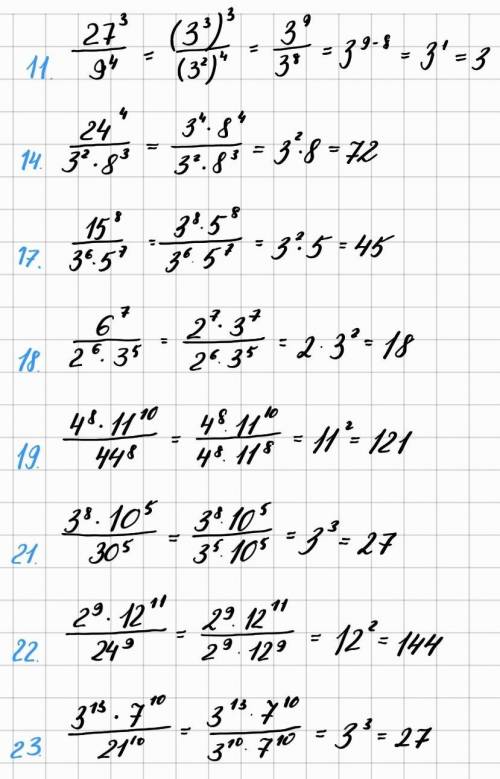 11. 27³/9⁴ = (3³)³/(3²)⁴ = 3⁹/3⁸ = 3⁹⁻⁸ = 3¹ = 3
14. 24⁴/3²·8³ = 3⁴·8⁴/3²·8³ = 3²·8 = 72
17. 15⁸/3⁶·5⁷ = 3⁸·5⁸/3⁶·5⁷ = 3²·5 = 45
18. 6⁷/2⁶·3⁵ = 2⁷·3⁷/2⁶·3⁵ = 2·3² = 18
19. 4⁸·11¹⁰/44⁸ = 4⁸·11¹⁰/4⁸·11⁸ = 11² = 121
21. 3⁸·10⁵/30⁵ = 3⁸·10⁵/3⁵·10⁵ = 3³ = 27
22. 2⁹·12¹¹/24⁹ = 2⁹·12¹¹/2⁹·12⁹ = 12² = 144
23. 3¹³·7¹⁰/21¹⁰ = 3¹³·7¹⁰/3¹⁰·7¹⁰ = 3³ = 27